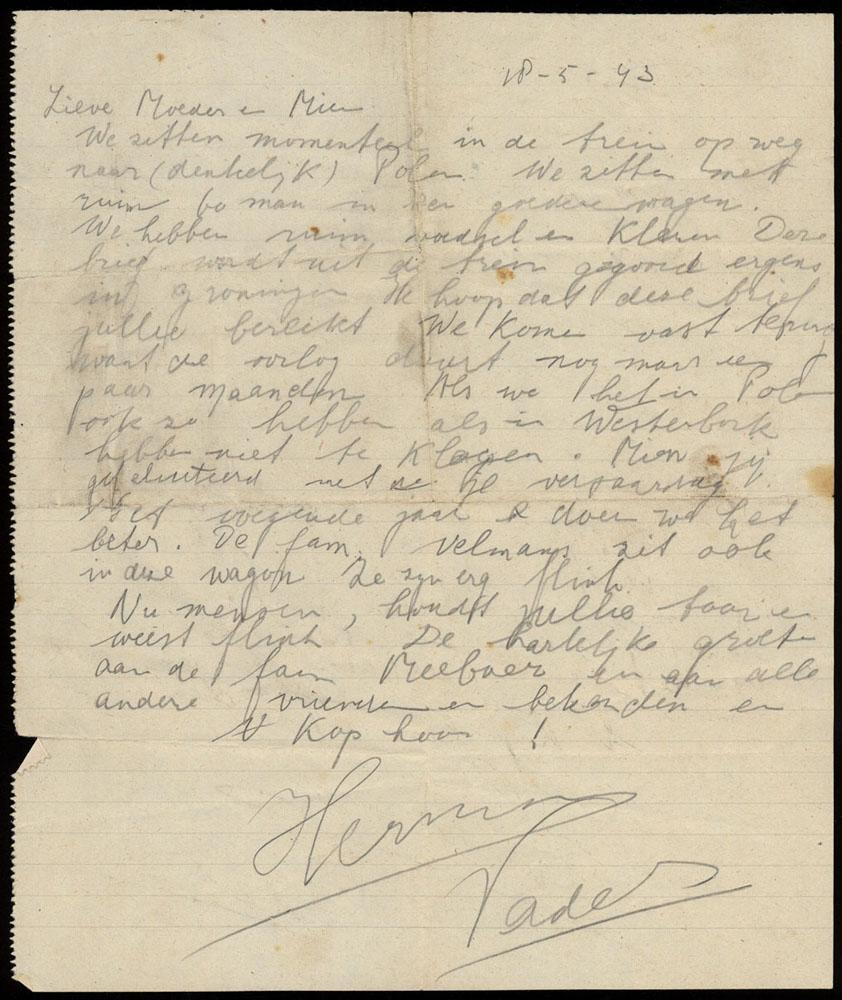 18-5-43
Lieve Moeder en Mien
We zitten momenteel in de trein op weg
naar (denkelijk) Polen. We zitten mett
ruim 60 man in een goederewagen.
We hebben ruim voedsel en Kleren Deze
brief wordt uit de trein gegooid ergens
in Groningen Ik hoop dat deze brief
jullie bereikt We Kome vast terug
want de oorlog duurt nog maar een
paar maanden Als we het in Polen
ook zo hebben als in Westerbork
hebben niet te Klagen. Mien jij
gefeliciteerd met je verjaardag.
Het volgende jaar doen we het
beter. De fam. Velmans zit ook
in deze wagon Ze zijn erg flink
Nu mensen, houdt jullie taai en
weest flink De hartelijke groete
aan de fam Meeboer en aan alle
andere vrienden en bekenden en
Kop hoor !
Herman
Vader